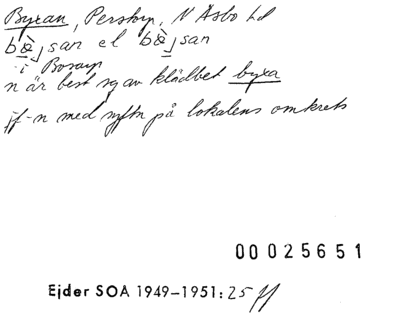 Byxan, Perstorp, N Åsbo hd
san el san
i Bosarp
n är best sg av klädbet byxa
jf-n med syftn på lokalens omkrets
00025651
Ejder SOA 1949–1951:25 ff